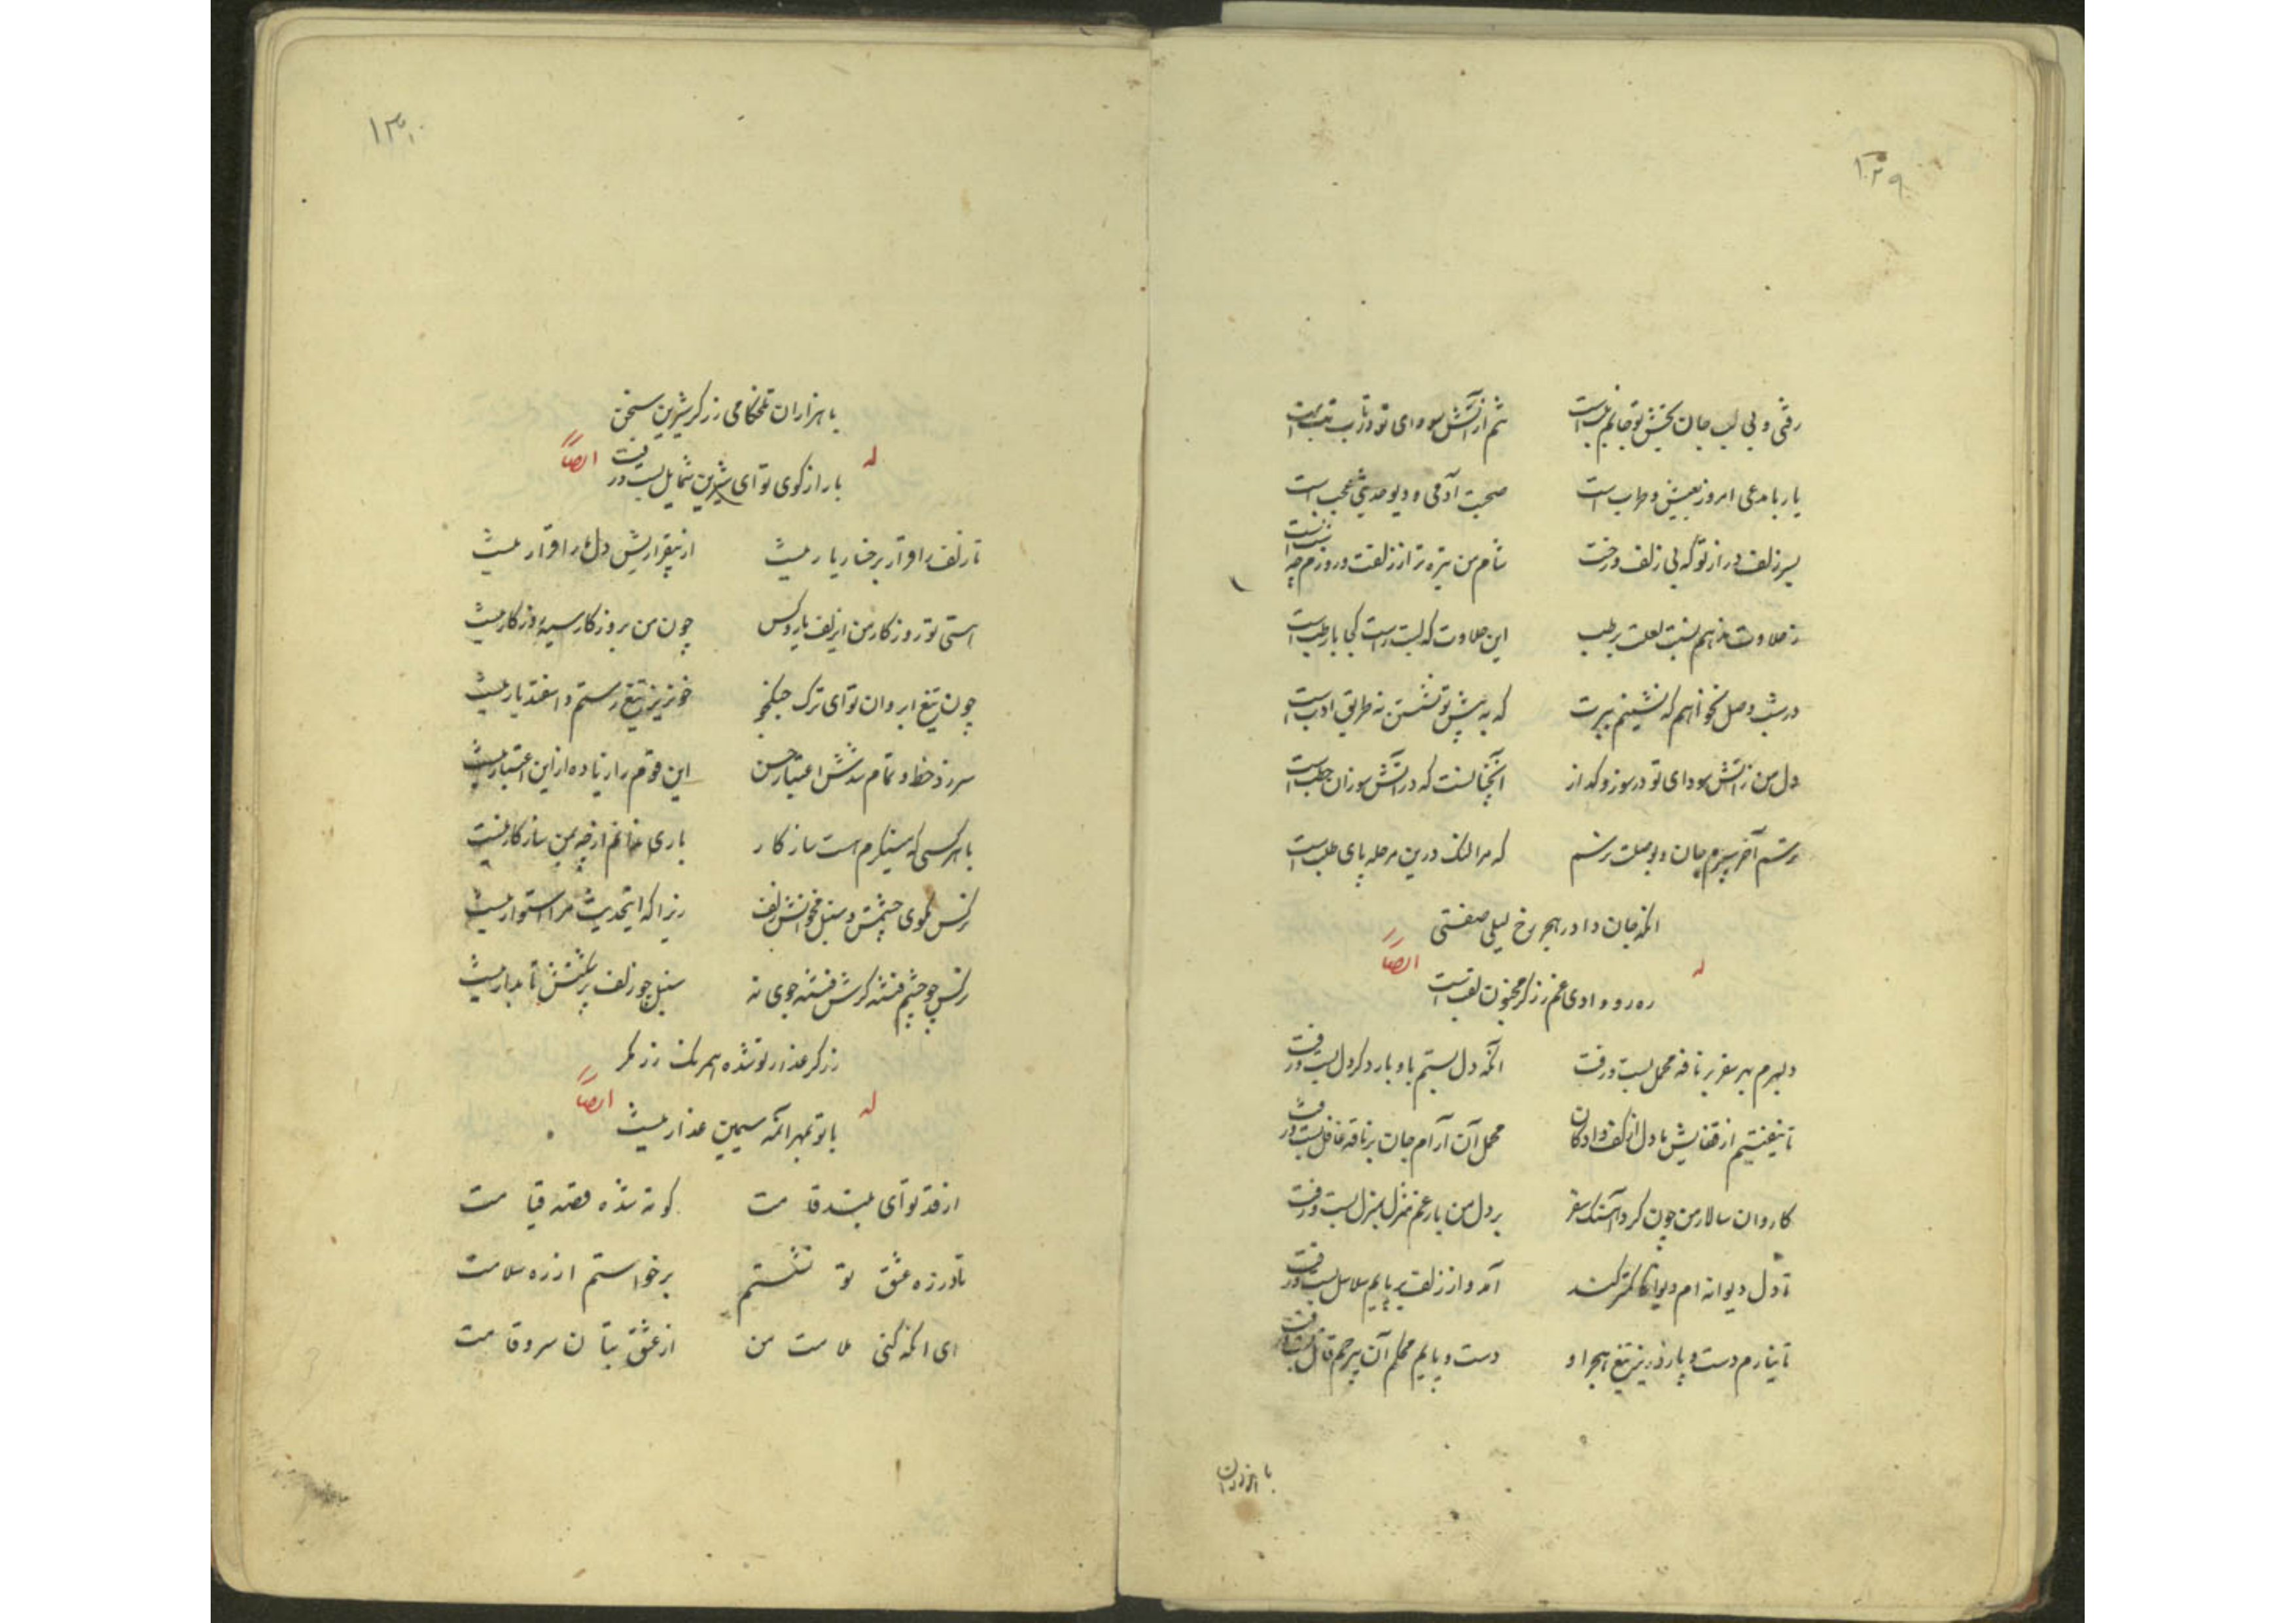 ۱۲۹
رفتی و بی لب جان بخش تو جانم بلب است تنم از آتش سودای تو در تاب و تب است
یار با مدعی امروز بعیش و طرب است صحبت آدمی و دیو حدیثی عجب است
بسر زلف دراز تو که بی زلف و رخت شام من تیره تر از زلفت و روزم چو شب است
ز حلاوت ندهم نسبت لعلت برطب این حلاوت که لبت راست کجا با رطب است
در شب وصل نخواهم که نشینم ببرت که به پیش تو نشستن نه طریق ادب است
دل من ز آتش سودای تو در سوز و گداز آنچنانست که در آتش سوزان حطب است
ترسم آخر سپرم جان و بوصلت نرسم که مرا لنگ درین مرحله پای طلب است
آنکه جان داد در هجر رخ لیلی صفتی
له ایضاً
ره رو وادی غم زرگر مجنون لقب است
دلبرم بهر سفر بر ناقه محمل بست و رفت آنکه دل بستم باو بار دگر دل بست و رفت
تا نیفتیم از قفایش ما دل از کف دادگان محمل آن آرام جان بر ناقه غافل بست و رفت
کاروان سالار من چون کرد آهنگ سفر بر دل من بار غم منزل بمنزل بست و رفت
تا دل دیوانه ام دیوانگی کمتر کند آمد و از زلف بر پایم سلاسل بست و رفت
تا نیارم دست و پا زد زیر تیغ هجر او دست و پایم محکم آن بیرحم قاتل بست و رفت
با هزاران
۱۳۰
با هزاران تلخکامی زرگر شیرین سخن
له ایضاً
بار از کوی تو ای شیرین شمایل بست و رفت
تا زلف را قرار برخسار یار نیست از بیقراریش دل ما را قرار نیست
هستی تو روزگار من ای زلف یار و کس چون من بروزگار سیه روزگار نیست
چون تیغ ابروان تو ای ترک جنگجو خونریز تیغ رستم و اسفندیار نیست
سر زد خط و تمام شدش اعتبار حسن این قوم را زیاده ازین اعتبار نیست
با هر کسی که مینگرم هست سازگار باری ندانم از چه بمن سازگار نیست
نرگس مگوی چشمش و سنبل مخوانش زلف زیرا که اینحدیث مرا استوار نیست
نرگس چو چشم فتنه گرش فتنه جوی نه سنبل چو زلف پرشکنش تابدار نیست
زرگر عذار تو شده همرنگ زر مگر
له ایضاً
با تو بمهر آنمه سیمین عذار نیست
از قد تو ای بلند قامت کوته شده قصه قیامت
تا در ره عشق تو نشستم برخواستم از ره سلامت
ای آنکه کنی ملامت من از عشق بتان سرو قامت